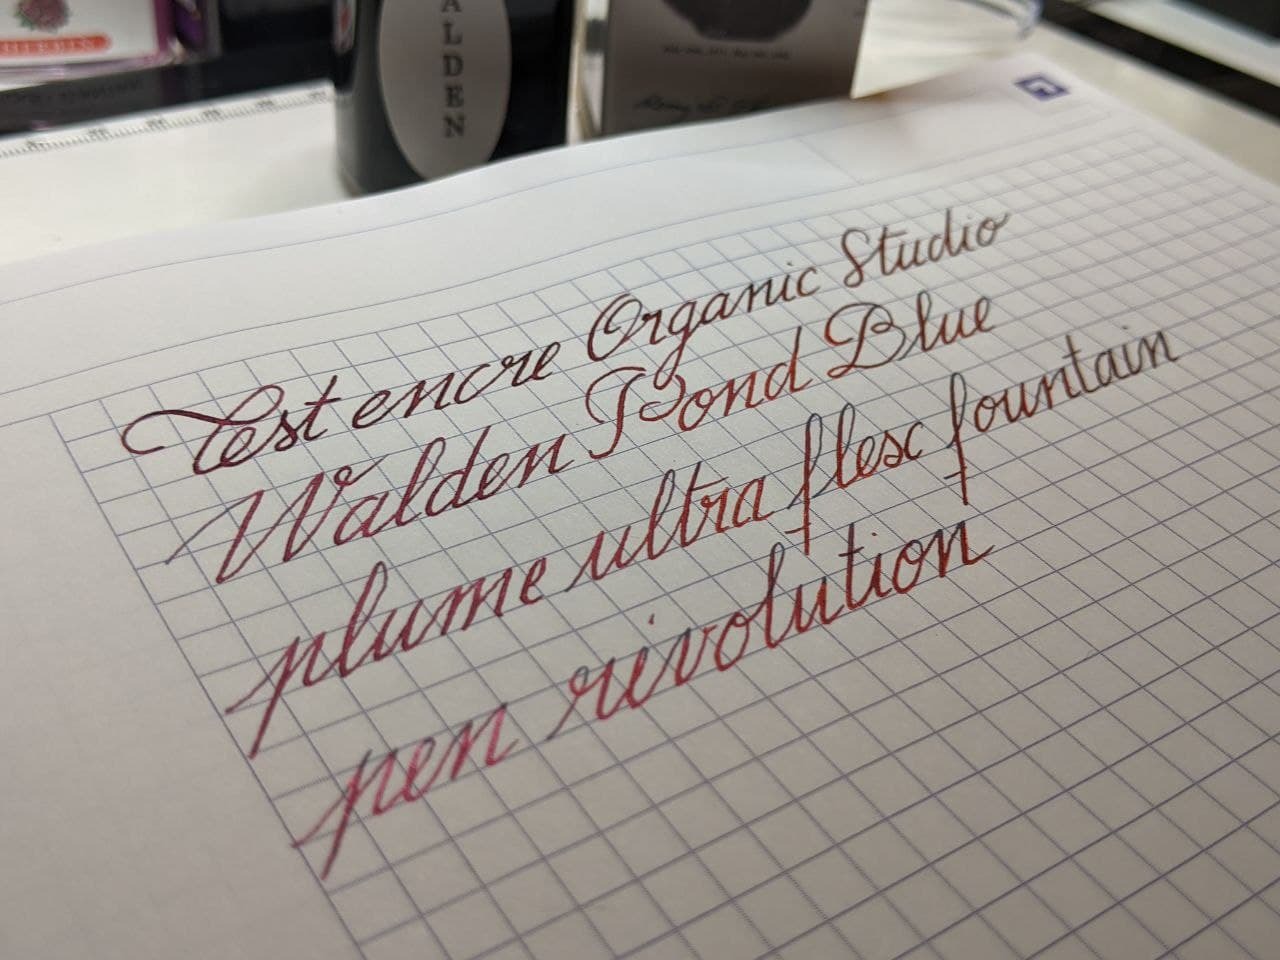 HERBIN
WALDEN
Test encre Organic Studio
Walden Pond Blue
plume ultra flex fountain
pen révolution